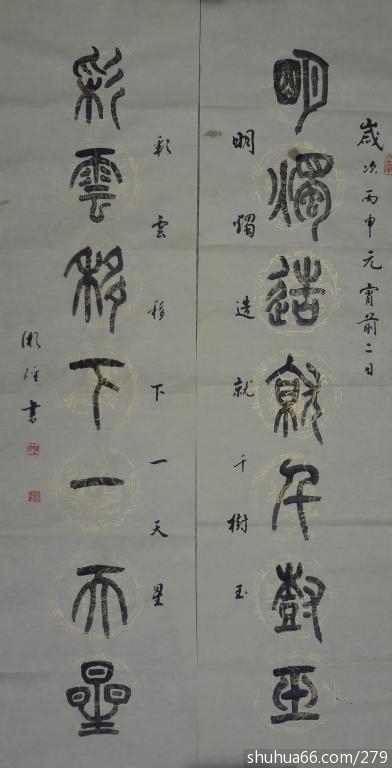 歲次丙申元宵前二日
明燭造就千樹玉
明燭造就千樹玉
彩雲移下一天星
彩雲移下一天星
書
shuhua66.com/279